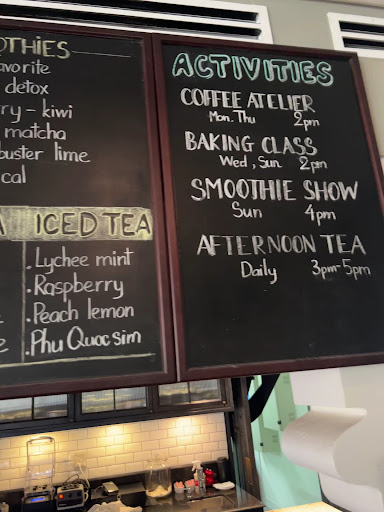 avorite
detox
kiwi
matcha
buster lime
ICED TEA
. Lychee mint
. Raspberry
. Peach lemon
. Phu Quoc sim
ACTIVITIES
COFFEE ATELIER
Mon, Thu 2pm
BAKING CLASS
Wed, Sun 2pm
SMOOTHIE SHOW
Sun 4pm
AFTERNOON TEA
Daily 3pm-5pm